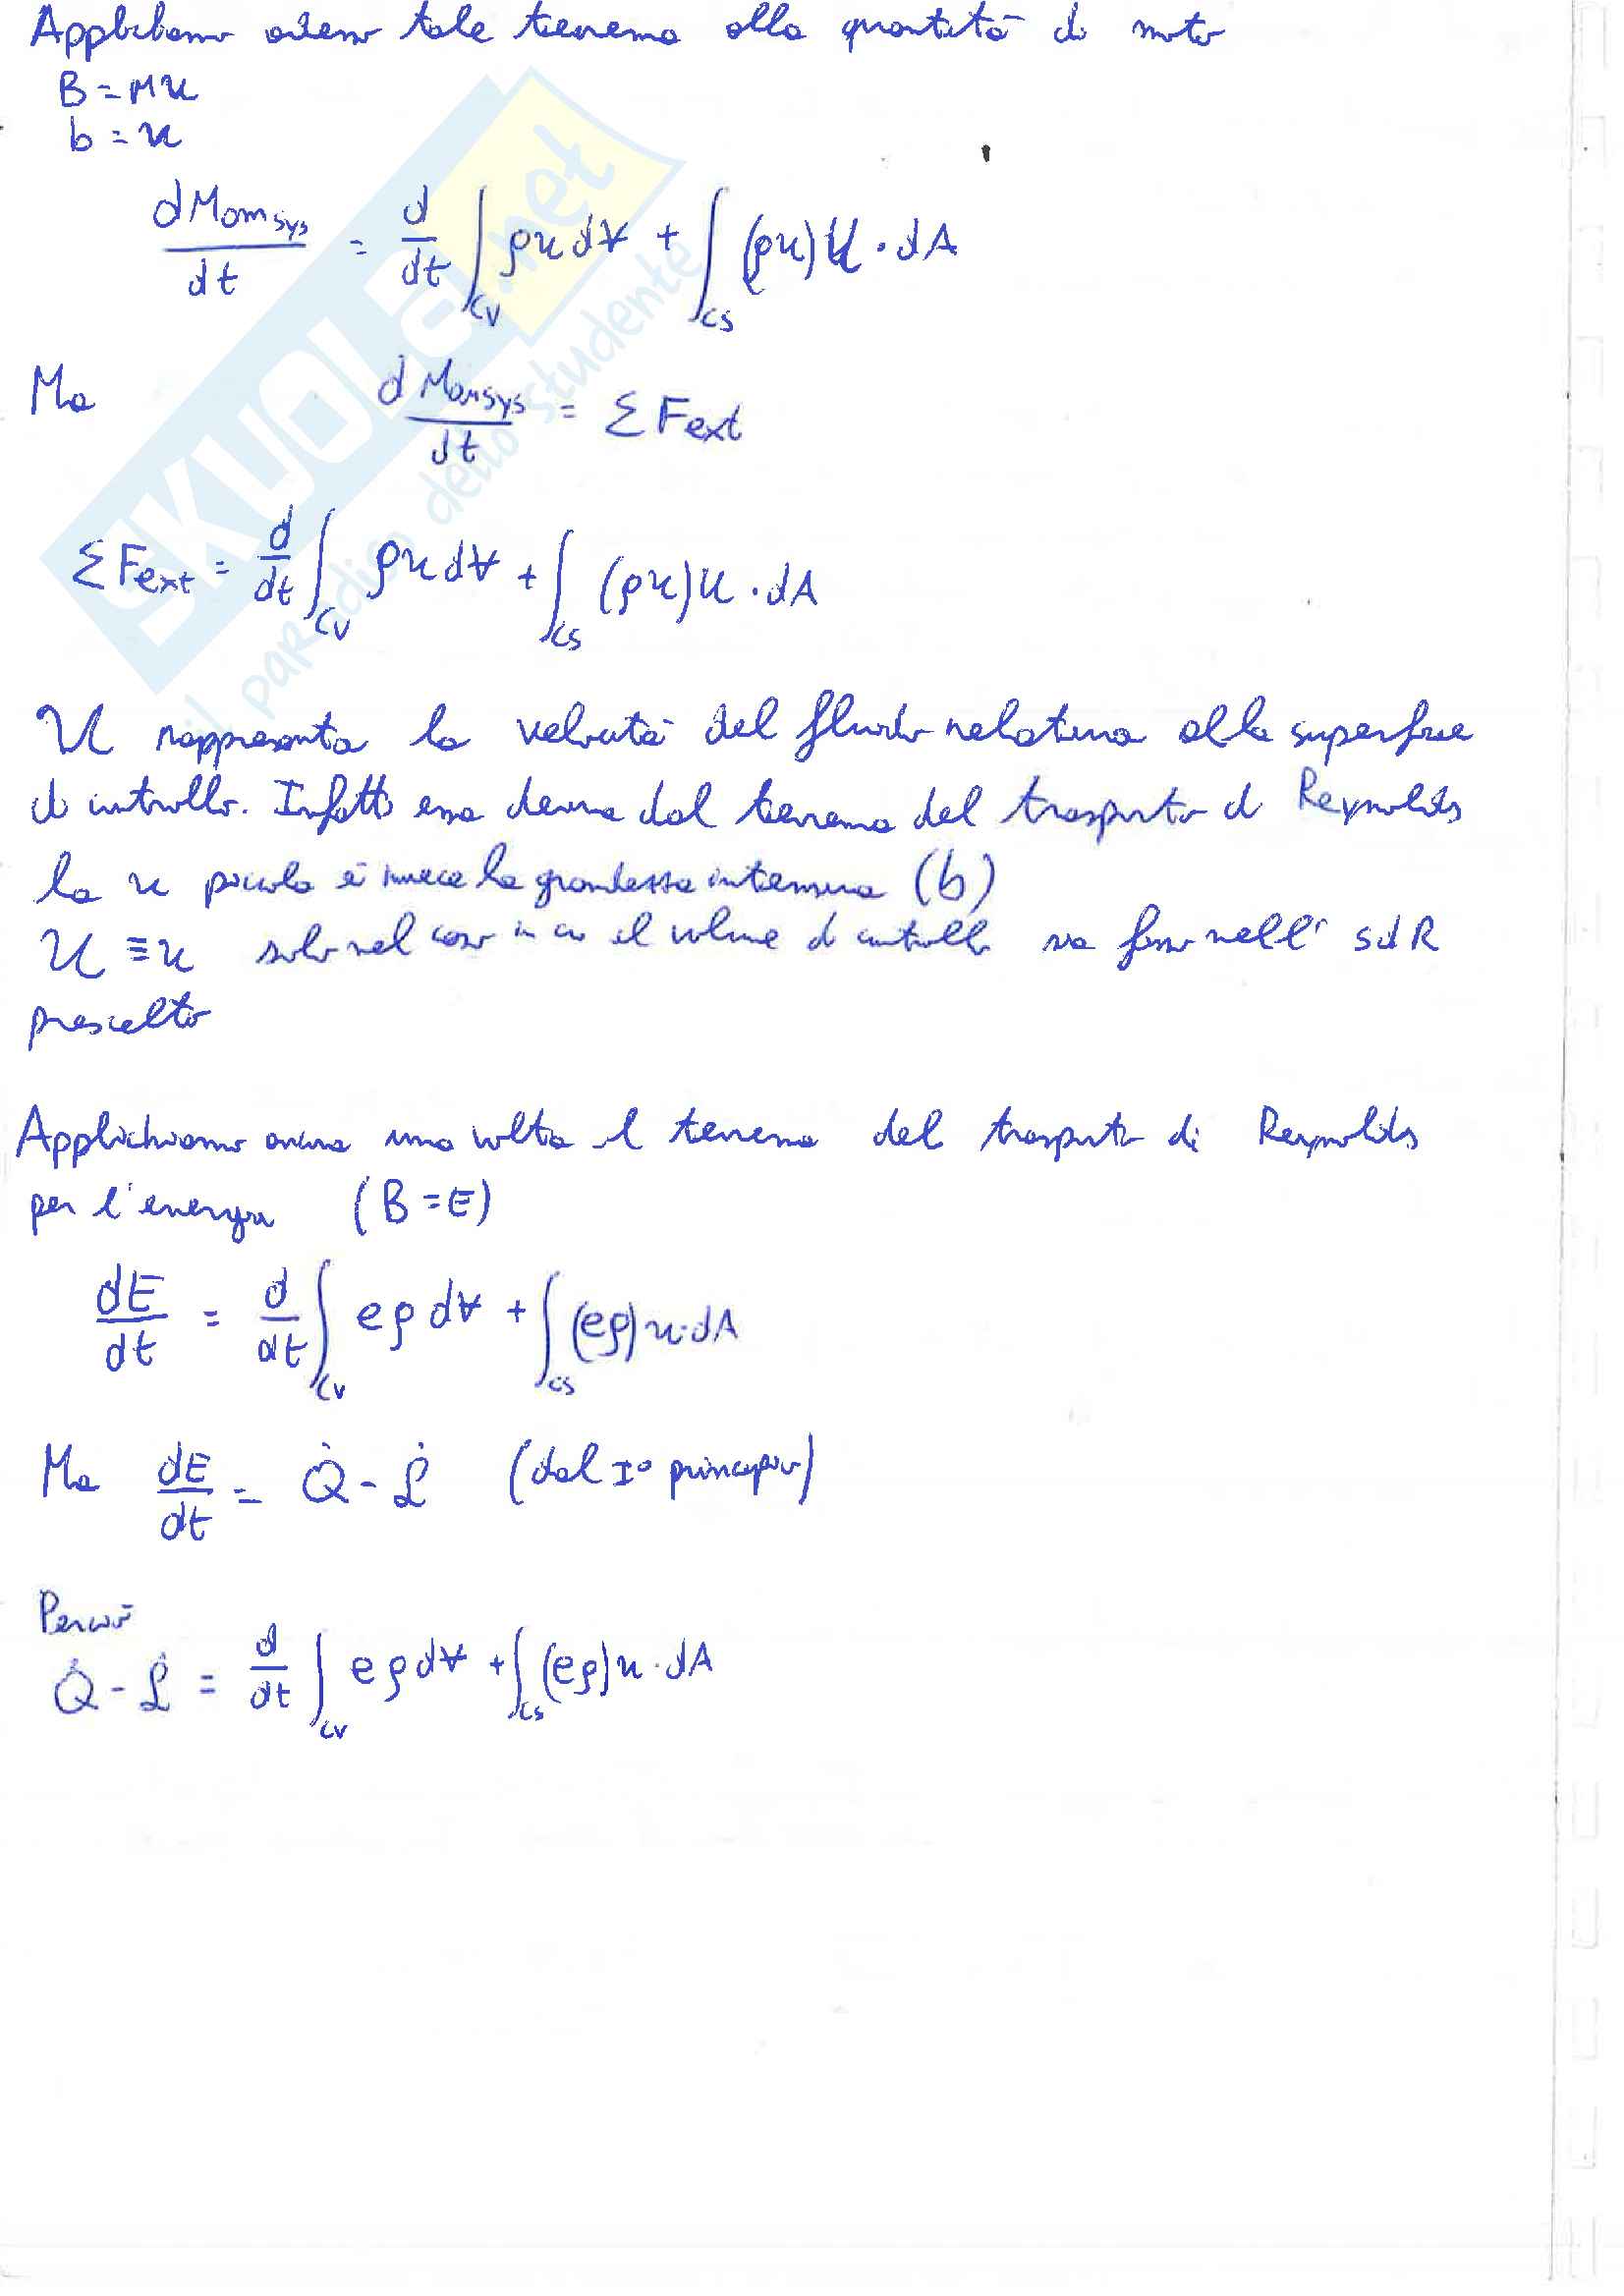 Applichiamo adesso tale teorema alla quantità di moto
B = Mu
b = u
dMom_sys/dt = d/dt ∫_CV ρu dV + ∫_CS (ρu)U · dA
Ma dMom_sys/dt = ΣF_ext
ΣF_ext = d/dt ∫_CV ρu dV + ∫_CS (ρu)U · dA
U rappresenta la velocità del fluido relativa alla superficie
di controllo. Infatti essa deriva dal teorema del trasporto di Reynolds
la u piccola è invece la grandezza intensiva (b)
U ≡ u solo nel caso in cui il volume di controllo sia fermo nell' SdR
prescelto
Applichiamo ancora una volta il teorema del trasporto di Reynolds
per l'energia (B = E)
dE/dt = d/dt ∫_CV eρ dV + ∫_CS (eρ)u · dA
Ma dE/dt = Q̇ - L̇ (dal I° principio)
Perciò
Q̇ - L̇ = d/dt ∫_CV eρ dV + ∫_CS (eρ)u · dA
SKUOLA.net
il paradiso dello studente